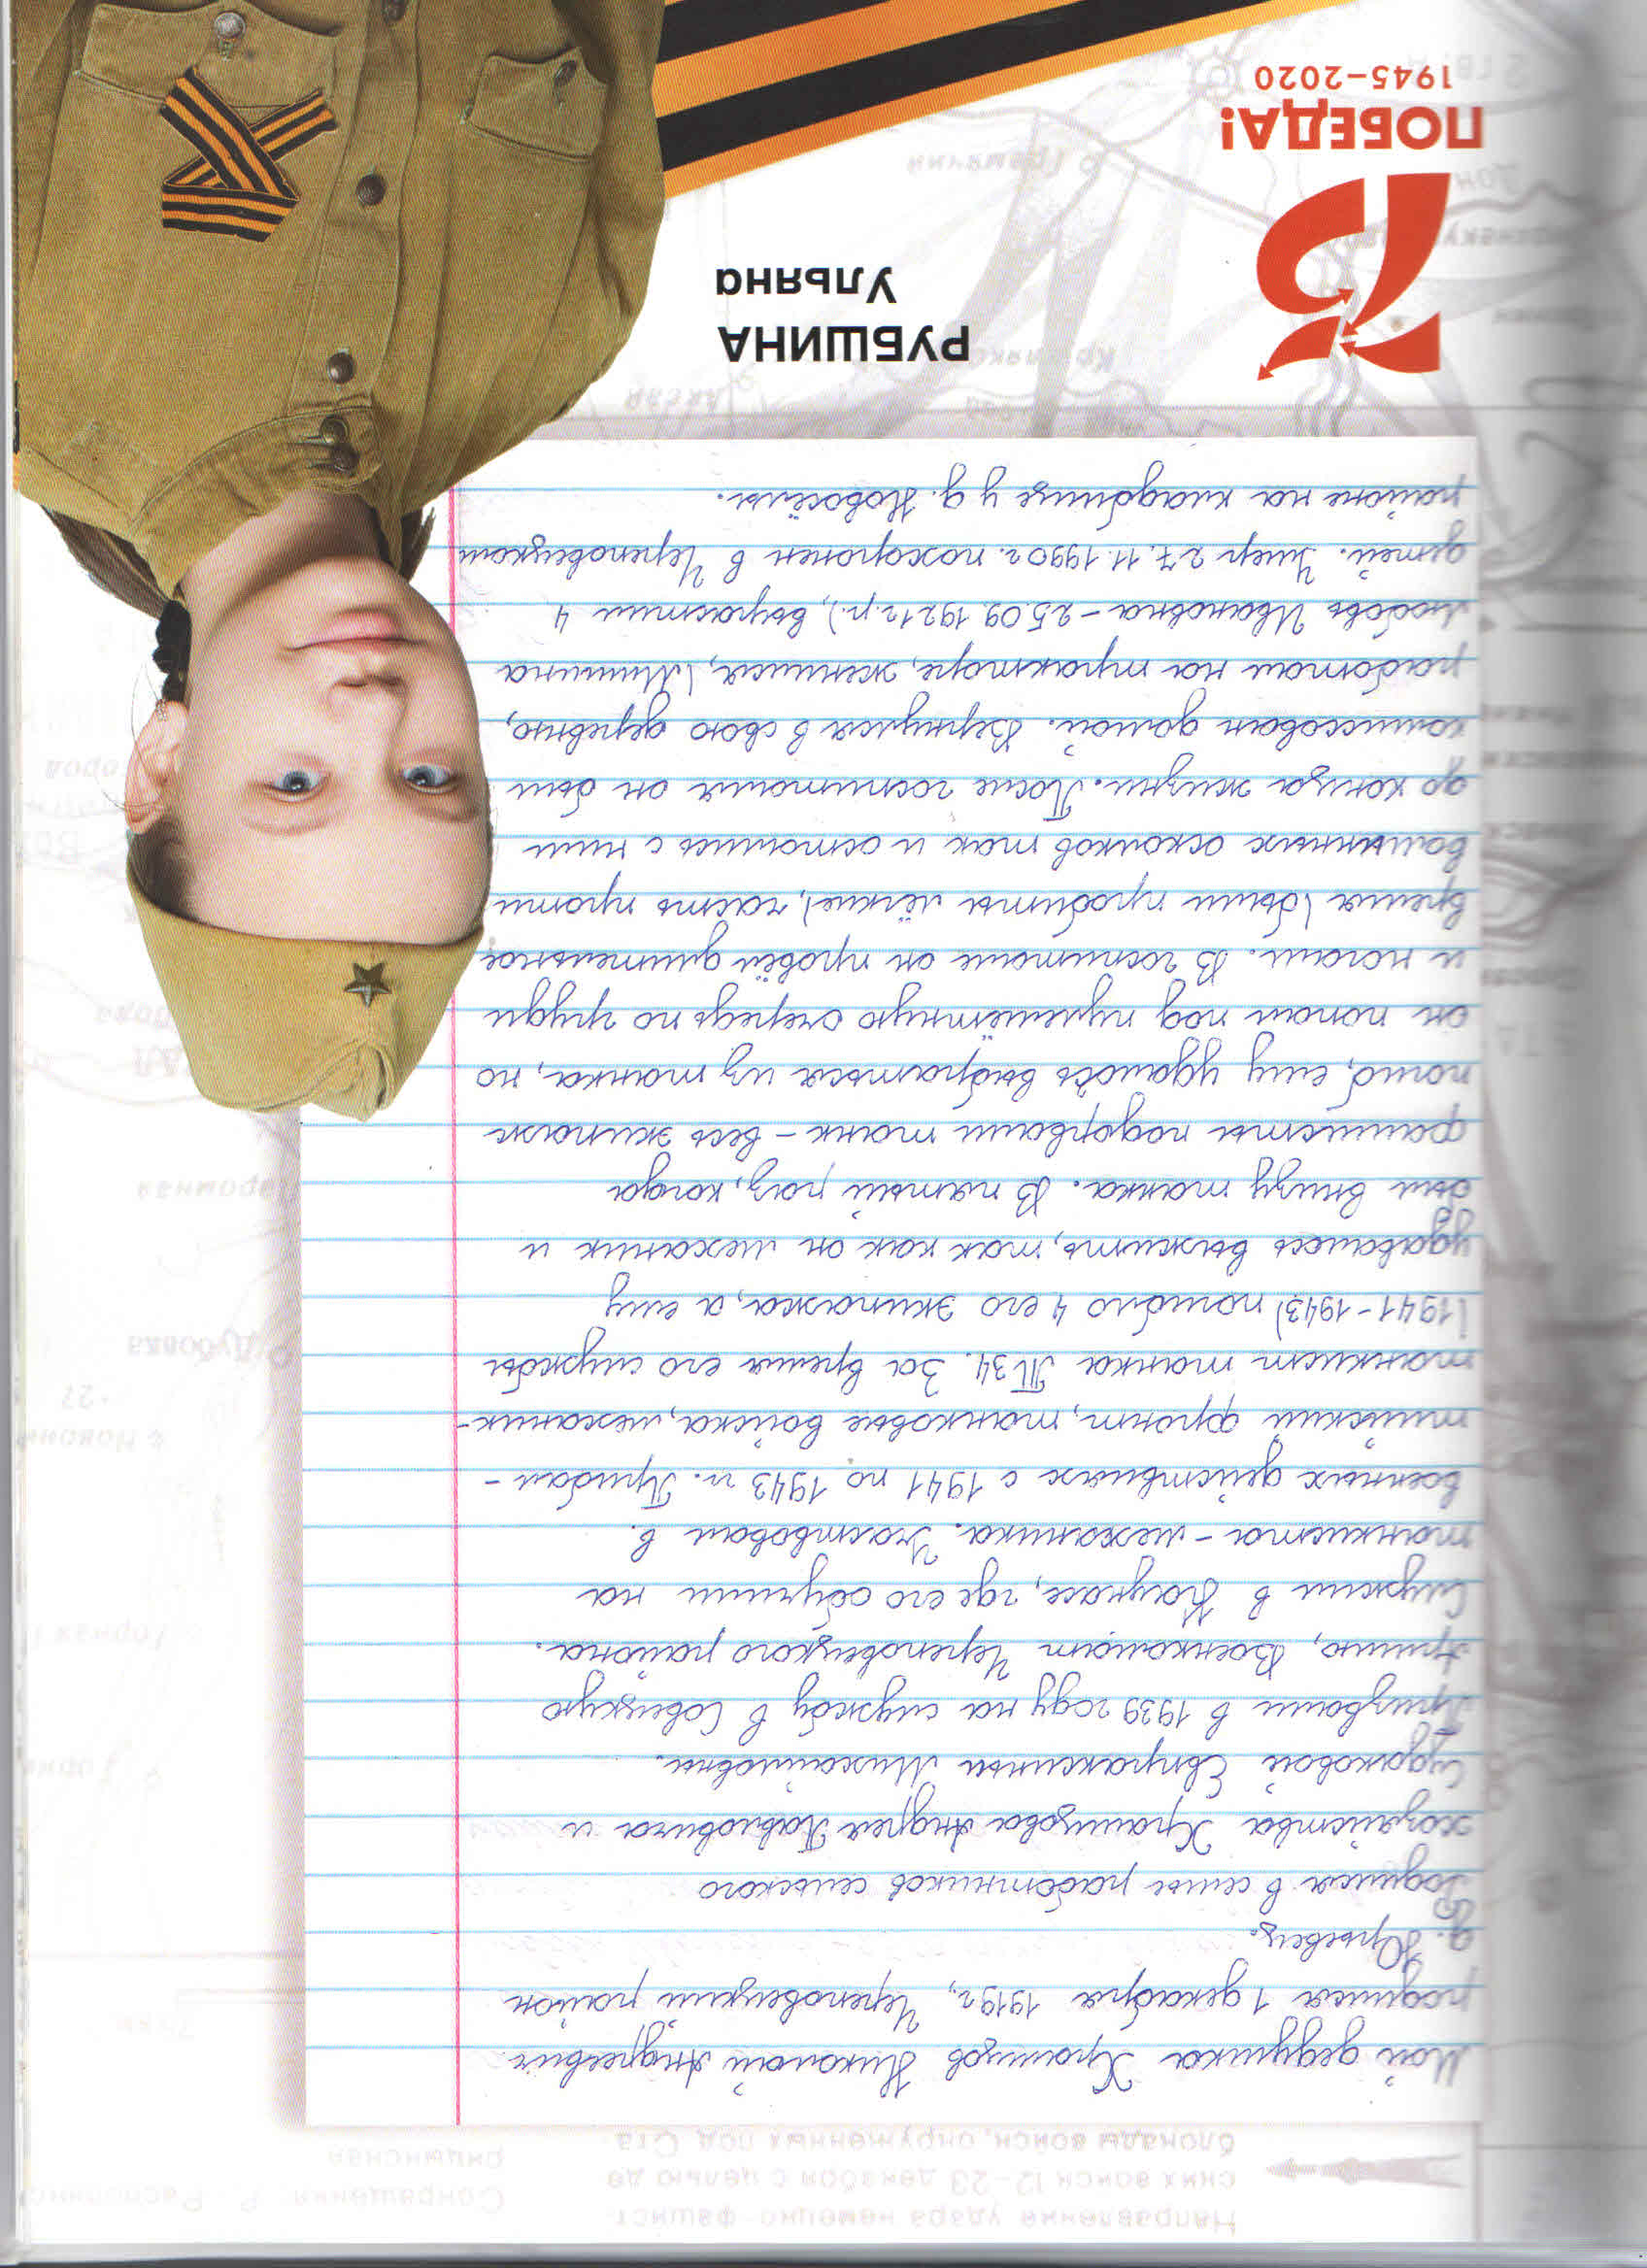 Направление удара немецко-фашист
ских войск 12–23 декабря с целью де
блокады войск, окруженных под Ста
Сокращения: Р.
рицынская
Мой дедушка Храмцов Николай Андреевич
родился 1 декабря 1919 г., Череповецкий район
д. Юрьевец.
Родился в семье работников сельского
хозяйства Храмцова Андрея Павловича и
Судаковой Евпраксиньи Михайловны.
Призвали в 1939 году на службу в Совецкую
Армию, Военкомат Череповецкого района.
Служил в Каунасе, где его обучили на
танкиста – механика. Участвовал в
военных действиях с 1941 по 1943 гг. Прибал-
тийский фронт, танковые войска, механик-
танкист танка Т34. За время его службы
(1941-1943) погибло 4 его экипажа, а ему
удавалось выжить, так как он механик и
был внизу танка. В пятый раз, когда
фашисты подорвали танк – весь экипаж
погиб, ему удалось выбраться из танка, но
он попал под пулемётную очередь по груди
и ногам. В госпитале он провёл длительное
время (были пробиты лёгкие), часть проти
вомынных осколков так и остались с ним
до конца жизни. После госпиталя он был
комиссован домой. Вернулся в свою деревню,
работал на тракторе, женился, (Мишина
Любовь Ивановна – 25.09.1921 г.р.), вырастил 4
детей. Умер 27.11.1990 г. похоронен в Череповецком
районе на кладбище у д. Новосёлы.
Дубовка
Аксай
Гремячий
РУБШИНА
Ульяна
75
ПОБЕДА!
1945–2020